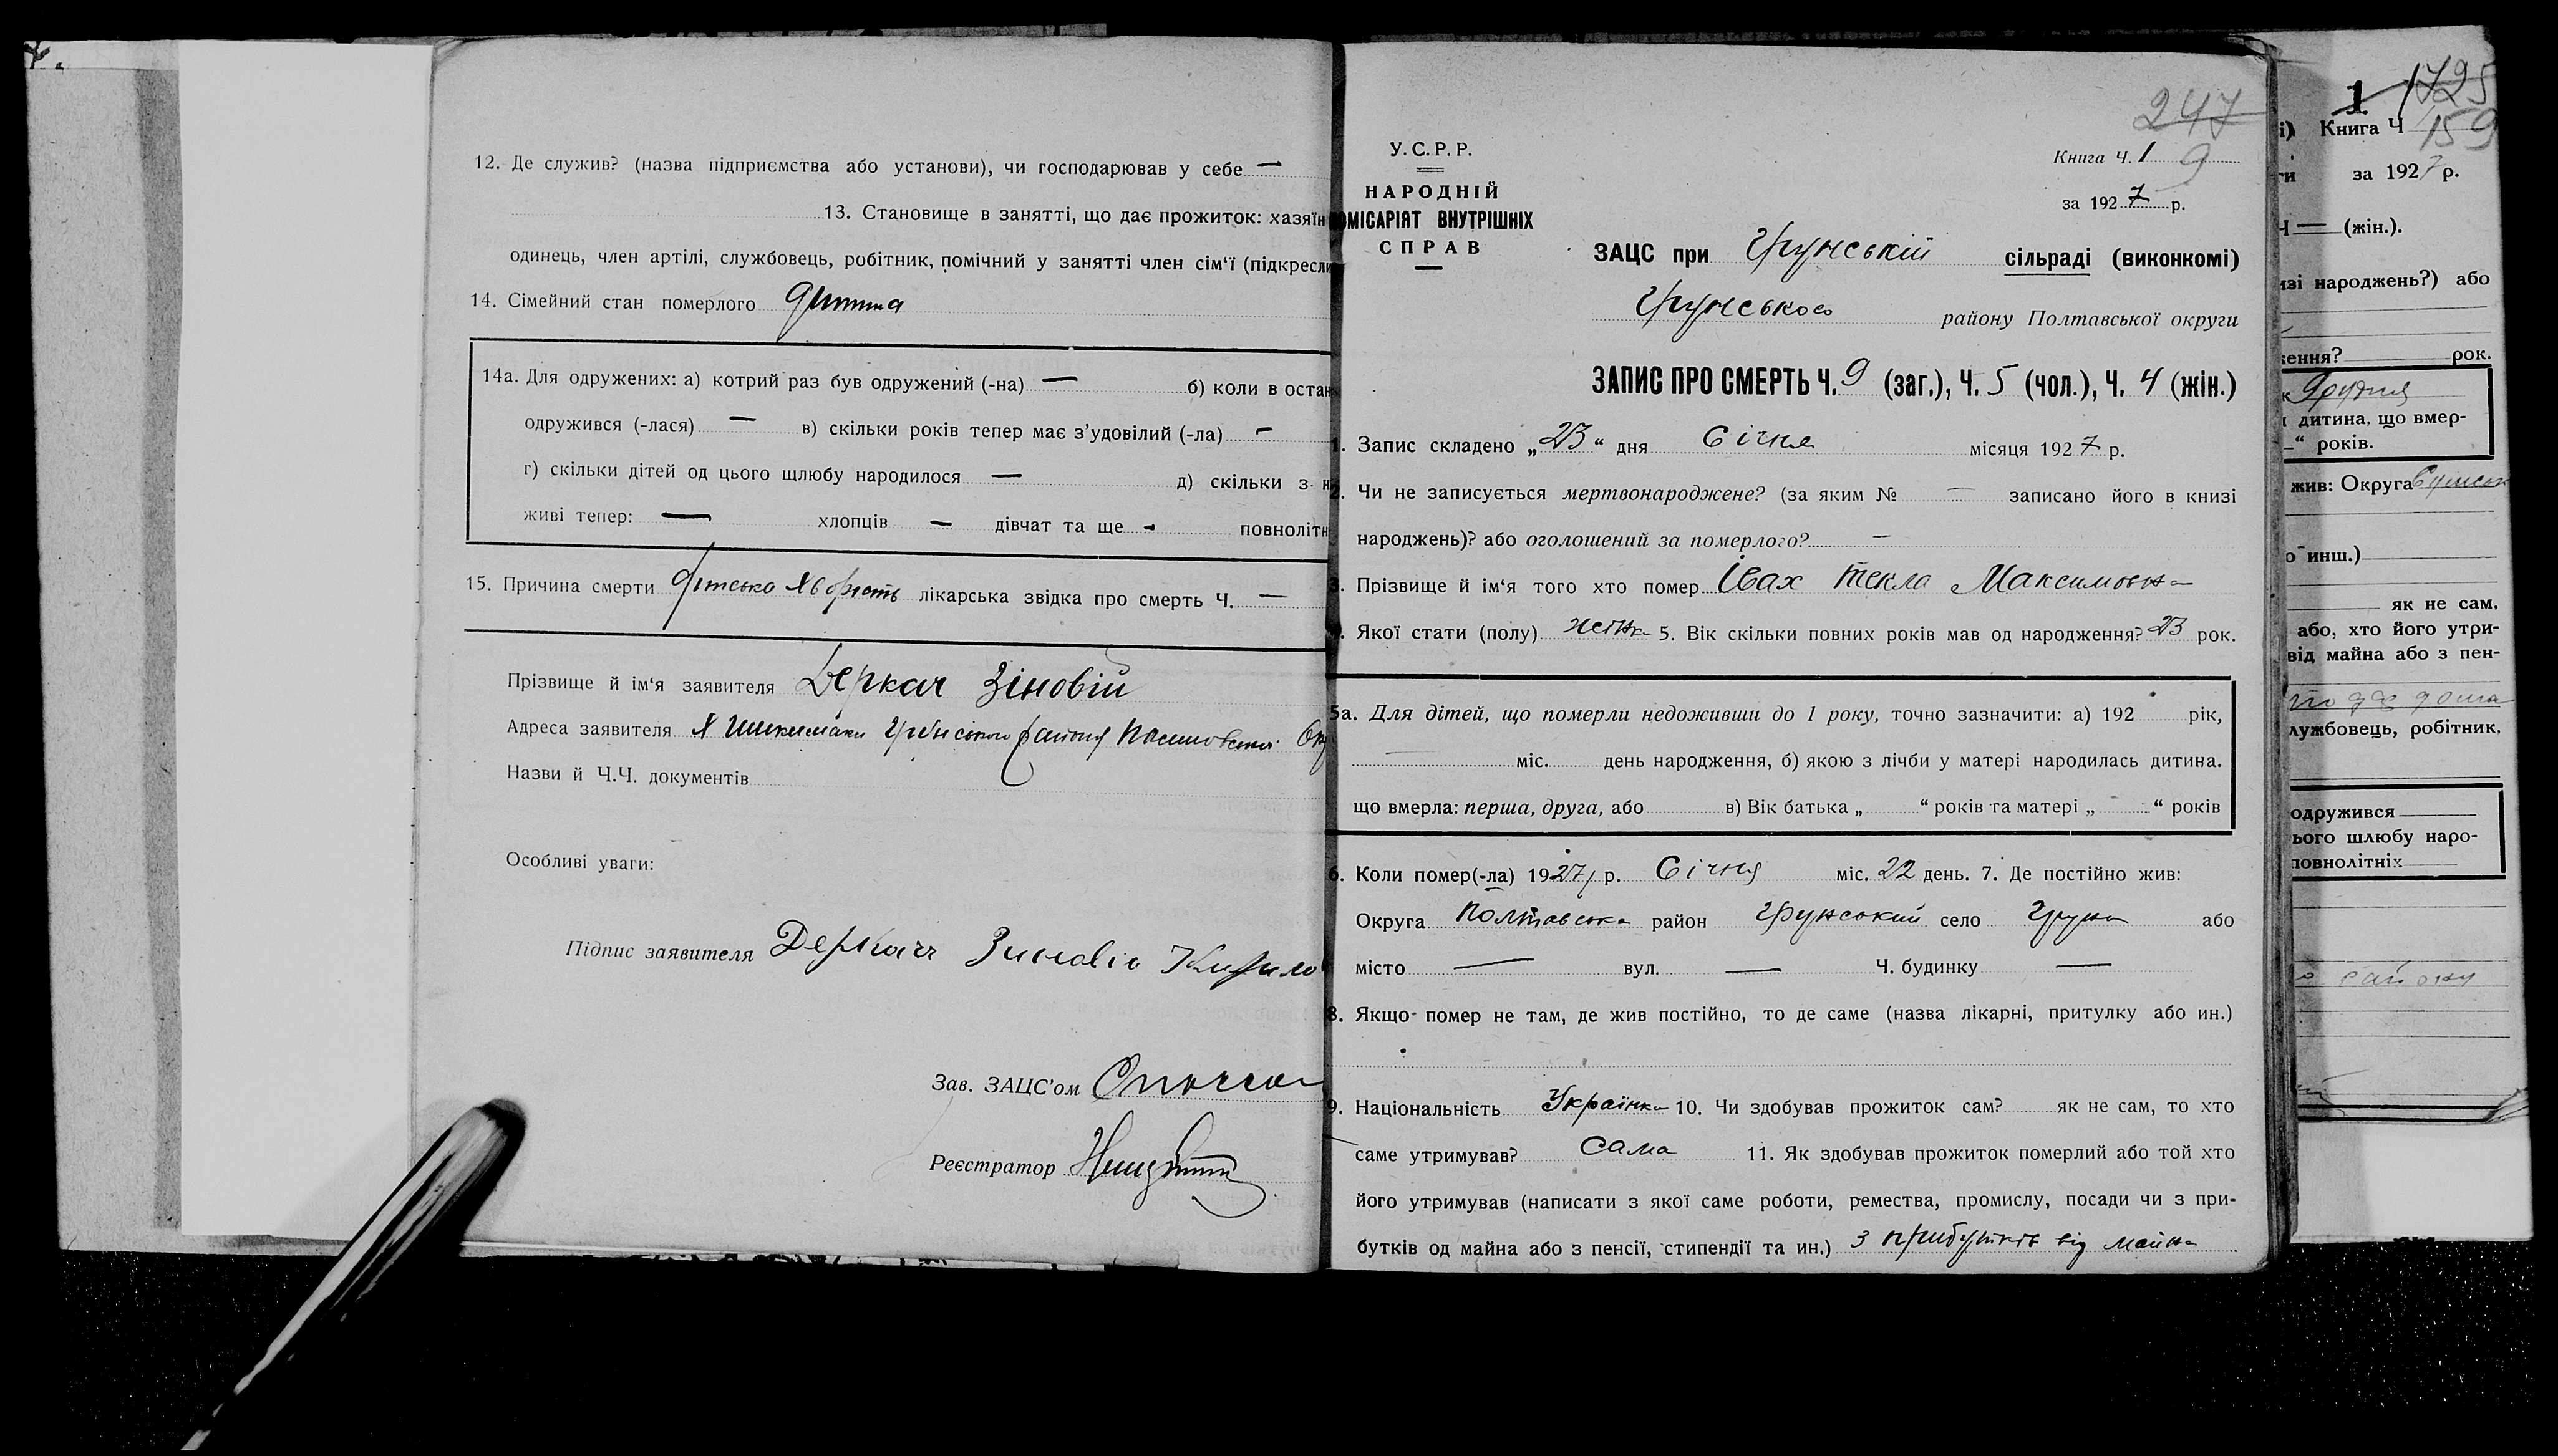 12. Де служив? (назва підприємства або установи), чи господарював у себе —
13. Становище в занятті, що дає прожиток: хазяїн
одинець, член артілі, службовець, робітник, помічний у занятті член сім'ї (підкресли
14. Сімейний стан померлого дитина
14а. Для одружених: а) котрий раз був одружений (-на) — б) коли в остан
одружився (-лася) — в) скільки років тепер має з'удовілий (-ла) —
г) скільки дітей од цього щлюбу народилося — д) скільки з н
живі тепер: — хлопців — дівчат та ще - повнолітн
15. Причина смерти лікарська звідка про смерть Ч. —
Прізвище й ім'я заявителя Деркач Зіновій
Адреса заявителя Х Шикимаки Грунського району
Назви й Ч.Ч. документів
Особливі уваги:
Підпис заявителя Деркач Зиновій Кирило
Зав. ЗАЦС'ом
Реєстратор
247
У.С.Р.Р.
Книга Ч. 1 9
НАРОДНІЙ
ОМІСАРІЯТ ВНУТРІШНІХ
СПРАВ
за 1927 р.
ЗАЦС при Грунській сільраді (виконкомі)
Грунського району Полтавської округи
ЗАПИС ПРО СМЕРТЬ Ч. 9 (заг.), Ч. 5 (чол.), Ч. 4 (жін.)
1. Запис складено „23“ дня Січня місяця 1927 р.
2. Чи не записується мертвонароджене? (за яким № — записано його в книзі
народжень)? або оголошений за померлого? —
3. Прізвище й ім'я того хто помер Івах Текла Максимовна
Якої стати (полу) жінк 5. Вік скільки повних років мав од народження? 23 рок.
5а. Для дітей, що померли недоживши до 1 року, точно зазначити: а) 192 рік,
міс. день народження, б) якою з лічби у матері народилась дитина.
що вмерла: перша, друга, або в) Вік батька „ “ років та матері „ “ років
6. Коли помер(-ла) 1927 р. Січня міс. 22 день. 7. Де постійно жив:
Округа Полтавська район Грунський село Грунь або
місто — вул. — Ч. будинку —
8. Якщо помер не там, де жив постійно, то де саме (назва лікарні, притулку або ин.)
9. Національність Українка 10. Чи здобував прожиток сам? як не сам, то хто
саме утримував? сама 11. Як здобував прожиток померлий або той хто
його утримував (написати з якої саме роботи, ремества, промислу, посади чи з при-
бутків од майна або з пенсії, стипендії та ин.) З прибутків від майна
1 1725
і) Книга Ч 159
ги за 1927 р.
Ч — (жін.).
изі народжень?) або
ення? рок.
Грудня
дитина, що вмер-
“ років.
жив: Округа
о инш.)
як не сам,
або, хто його утри-
від майна або з пен-
лужбовець, робітник,
одружився
ього шлюбу наро-
повнолітніх
о району